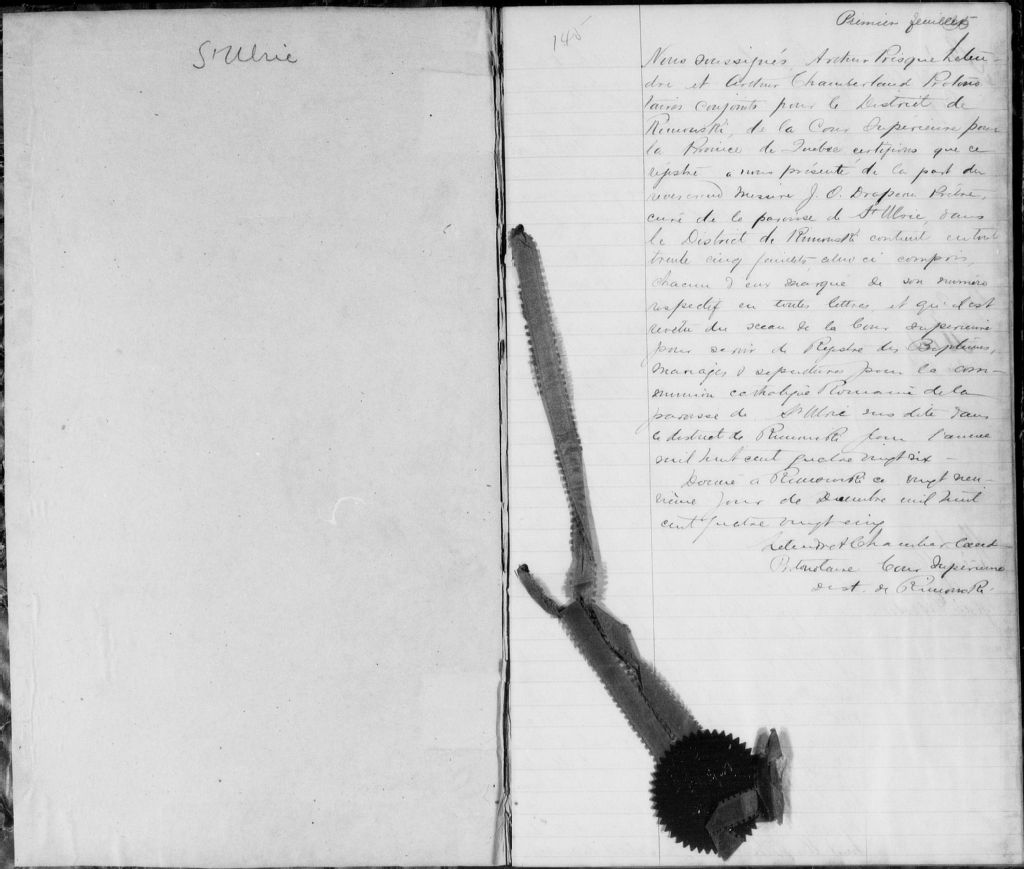 St Ulric
145
Premier feuillet
Nous soussignés, Arthur Prisque Leten-
dre et Arthur Chamberland Protono
taires conjoints pour le District de
Rimouski, de la Cour Supérieure pour
la Province de Québec certifions que ce
régistre a nous présenté de la part du
reverend Messire J. O. Drapeau Prêtre,
curé de la paroisse de St Ulric, dans
le District de Rimouski contient en tout
trente cinq feuillets celui ci compris,
chacun d eux marqué de son numéro
respectif en toutes lettres, et qu'il est
revêtu du sceau de la Cour Supérieure
pour servir de Régistre des Baptêmes,
mariages & sepultures pour la com-
munion catholique Romaine de la
paroisse de St Ulric sus dite dans
le district de Rimouski pour l'année
mil huit cent quatre vingt six -
Donné a Rimouski ce vingt neu-
vième jour de Decembre mil huit
cent quatre vingt cinq
Letendre & Chamberland
Protonotaire Cour Supérieure
dist. de Rimouski